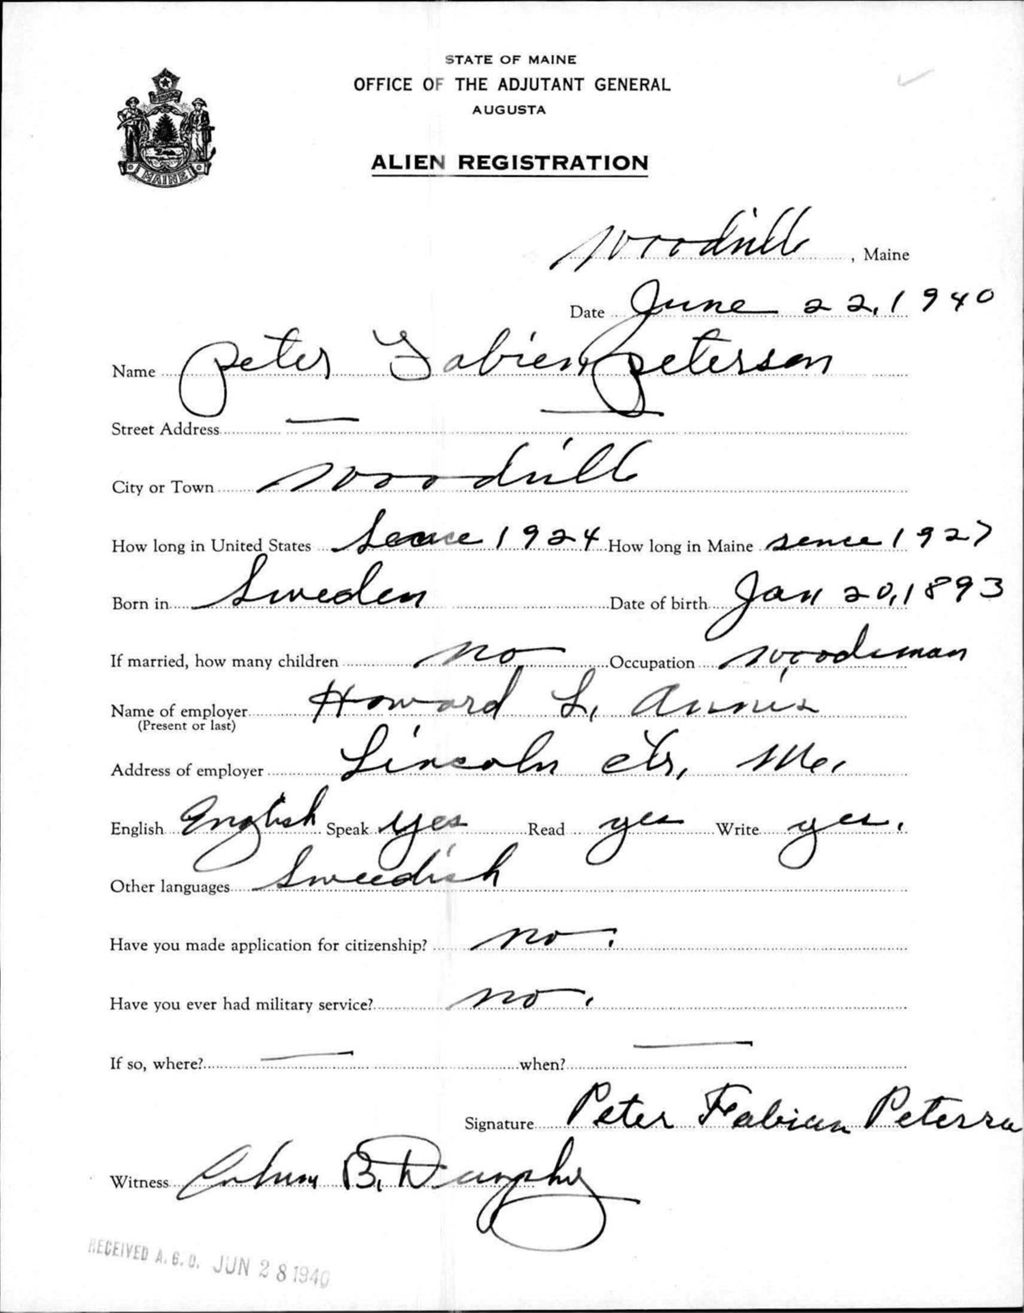 STATE OF MAINE
OFFICE OF THE ADJUTANT GENERAL
AUGUSTA
MAINE
ALIEN REGISTRATION
Woodville, Maine
Date June 22, 1940
Name Peter Fabien Peterson
Street Address —
City or Town Woodville
How long in United States Sence 1924 How long in Maine sence 1927
Born in Sweden Date of birth Jan 20, 1893
If married, how many children no Occupation woodsman
Name of employer Howard L. Annis
(Present or last)
Address of employer Lincoln Ctr, Me.
English English Speak yes Read yes Write yes.
Other languages Swedish
Have you made application for citizenship? no.
Have you ever had military service? no.
If so, where? — when? —
Signature Peter Fabian Peterso
Witness B. Murphy
RECEIVED A. G. O. JUN 28 1940